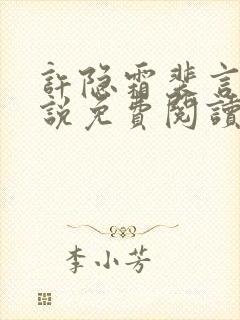 許隐霜裴言
說免費閱讀
李小芳